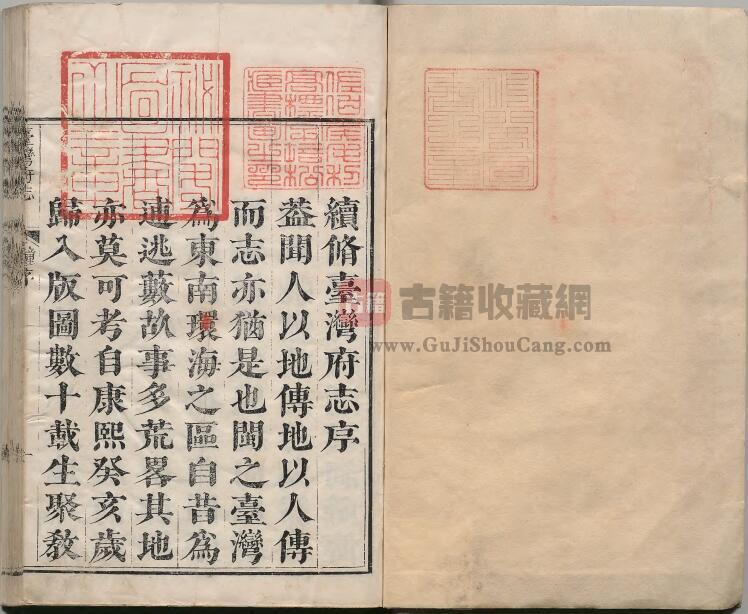 續脩臺灣府志序
葢聞人以地傳地以人傳
而志亦猶是也閩之臺灣
為東南環海之區自昔為
逋逃藪故事多荒畧其地
亦莫可考自康熙癸亥歲
歸入版圖數十載生聚敎
古籍
古籍收藏網
www.GuJiShouCang.com